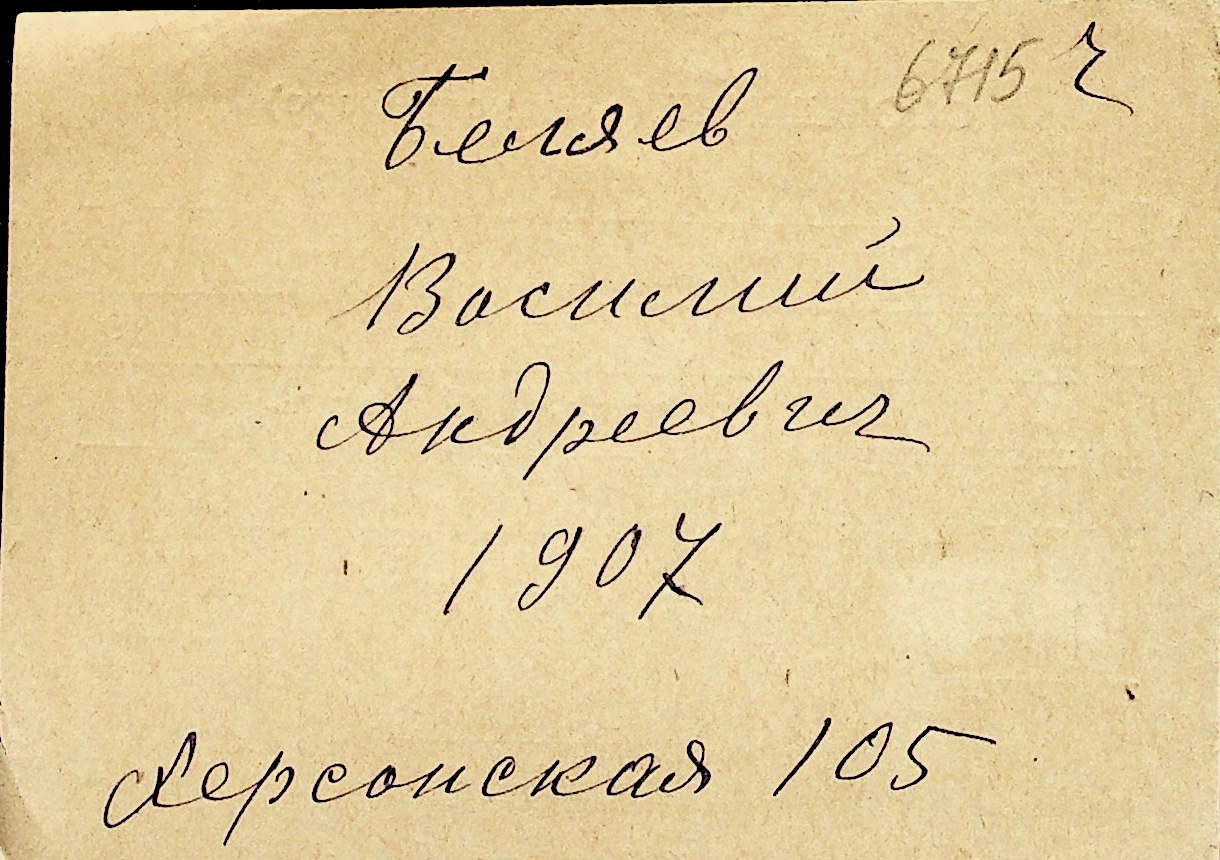 6715 ч
Беляев
Василий
Андреевич
1907
Херсонская 105